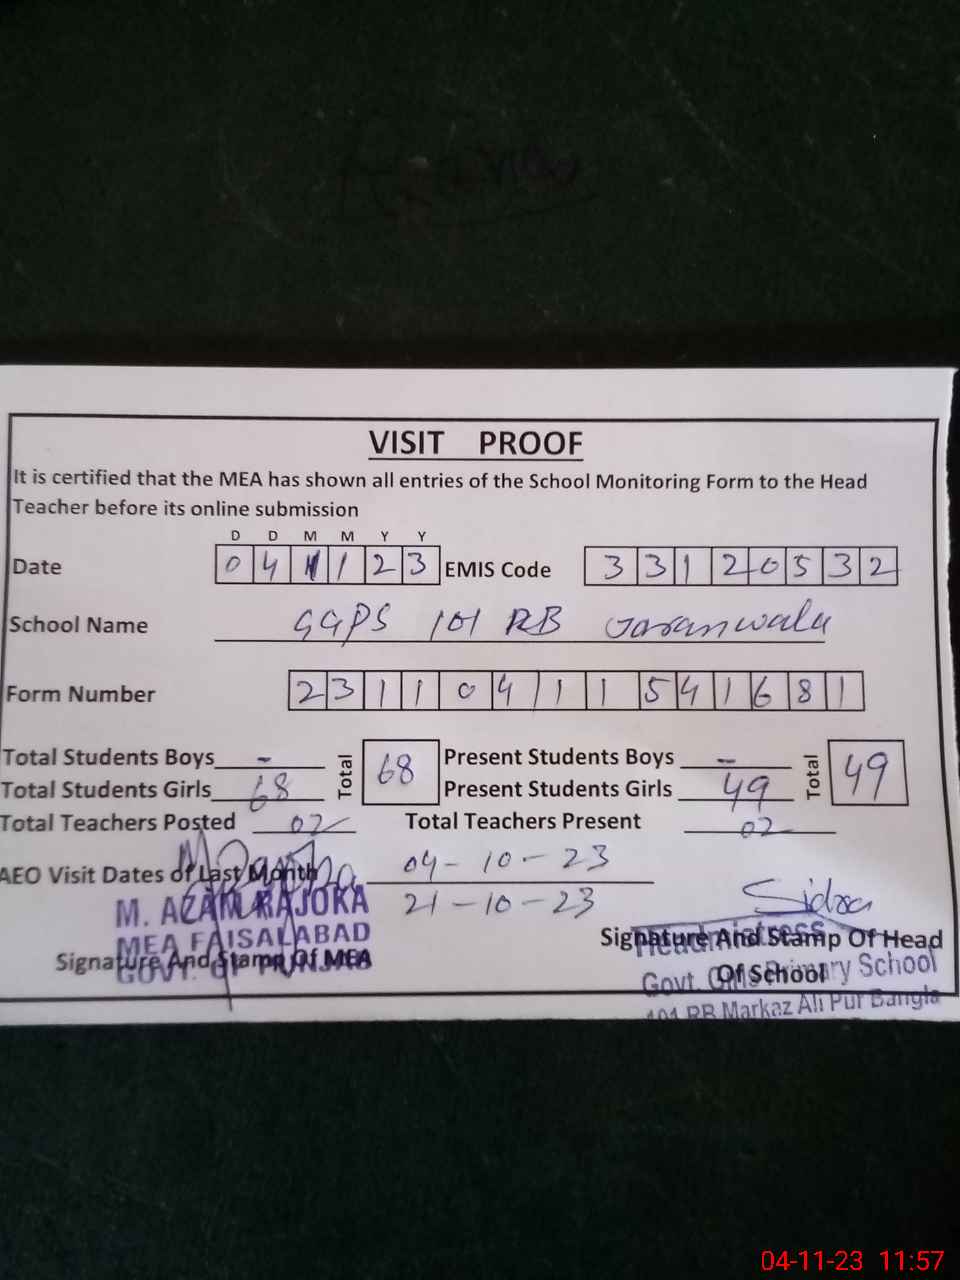 VISIT PROOF
It is certified that the MEA has shown all entries of the School Monitoring Form to the Head
Teacher before its online submission
D D M M Y Y
Date 0 4 1 1 2 3 EMIS Code 3 3 1 2 0 5 3 2
School Name GGPS 101 RB Jaranwala
Form Number 2 3 1 1 0 4 1 1 5 4 1 6 8 1
Total Students Boys - Total 68 Present Students Boys - Total 49
Total Students Girls 68 Present Students Girls 49
Total Teachers Posted 02 Total Teachers Present 02
AEO Visit Dates of Last Month 04-10-23
21-10-23
M. AZAM RAJOKA
MEA FAISALABAD
GOVT. OF PUNJAB
Signature And Stamp Of MEA
Sidra
Signature And Stamp Of Head
Of School
Headmistress
Govt. Girls Primary School
101 RB Markaz Ali Pur Bangla
04-11-23 11:57